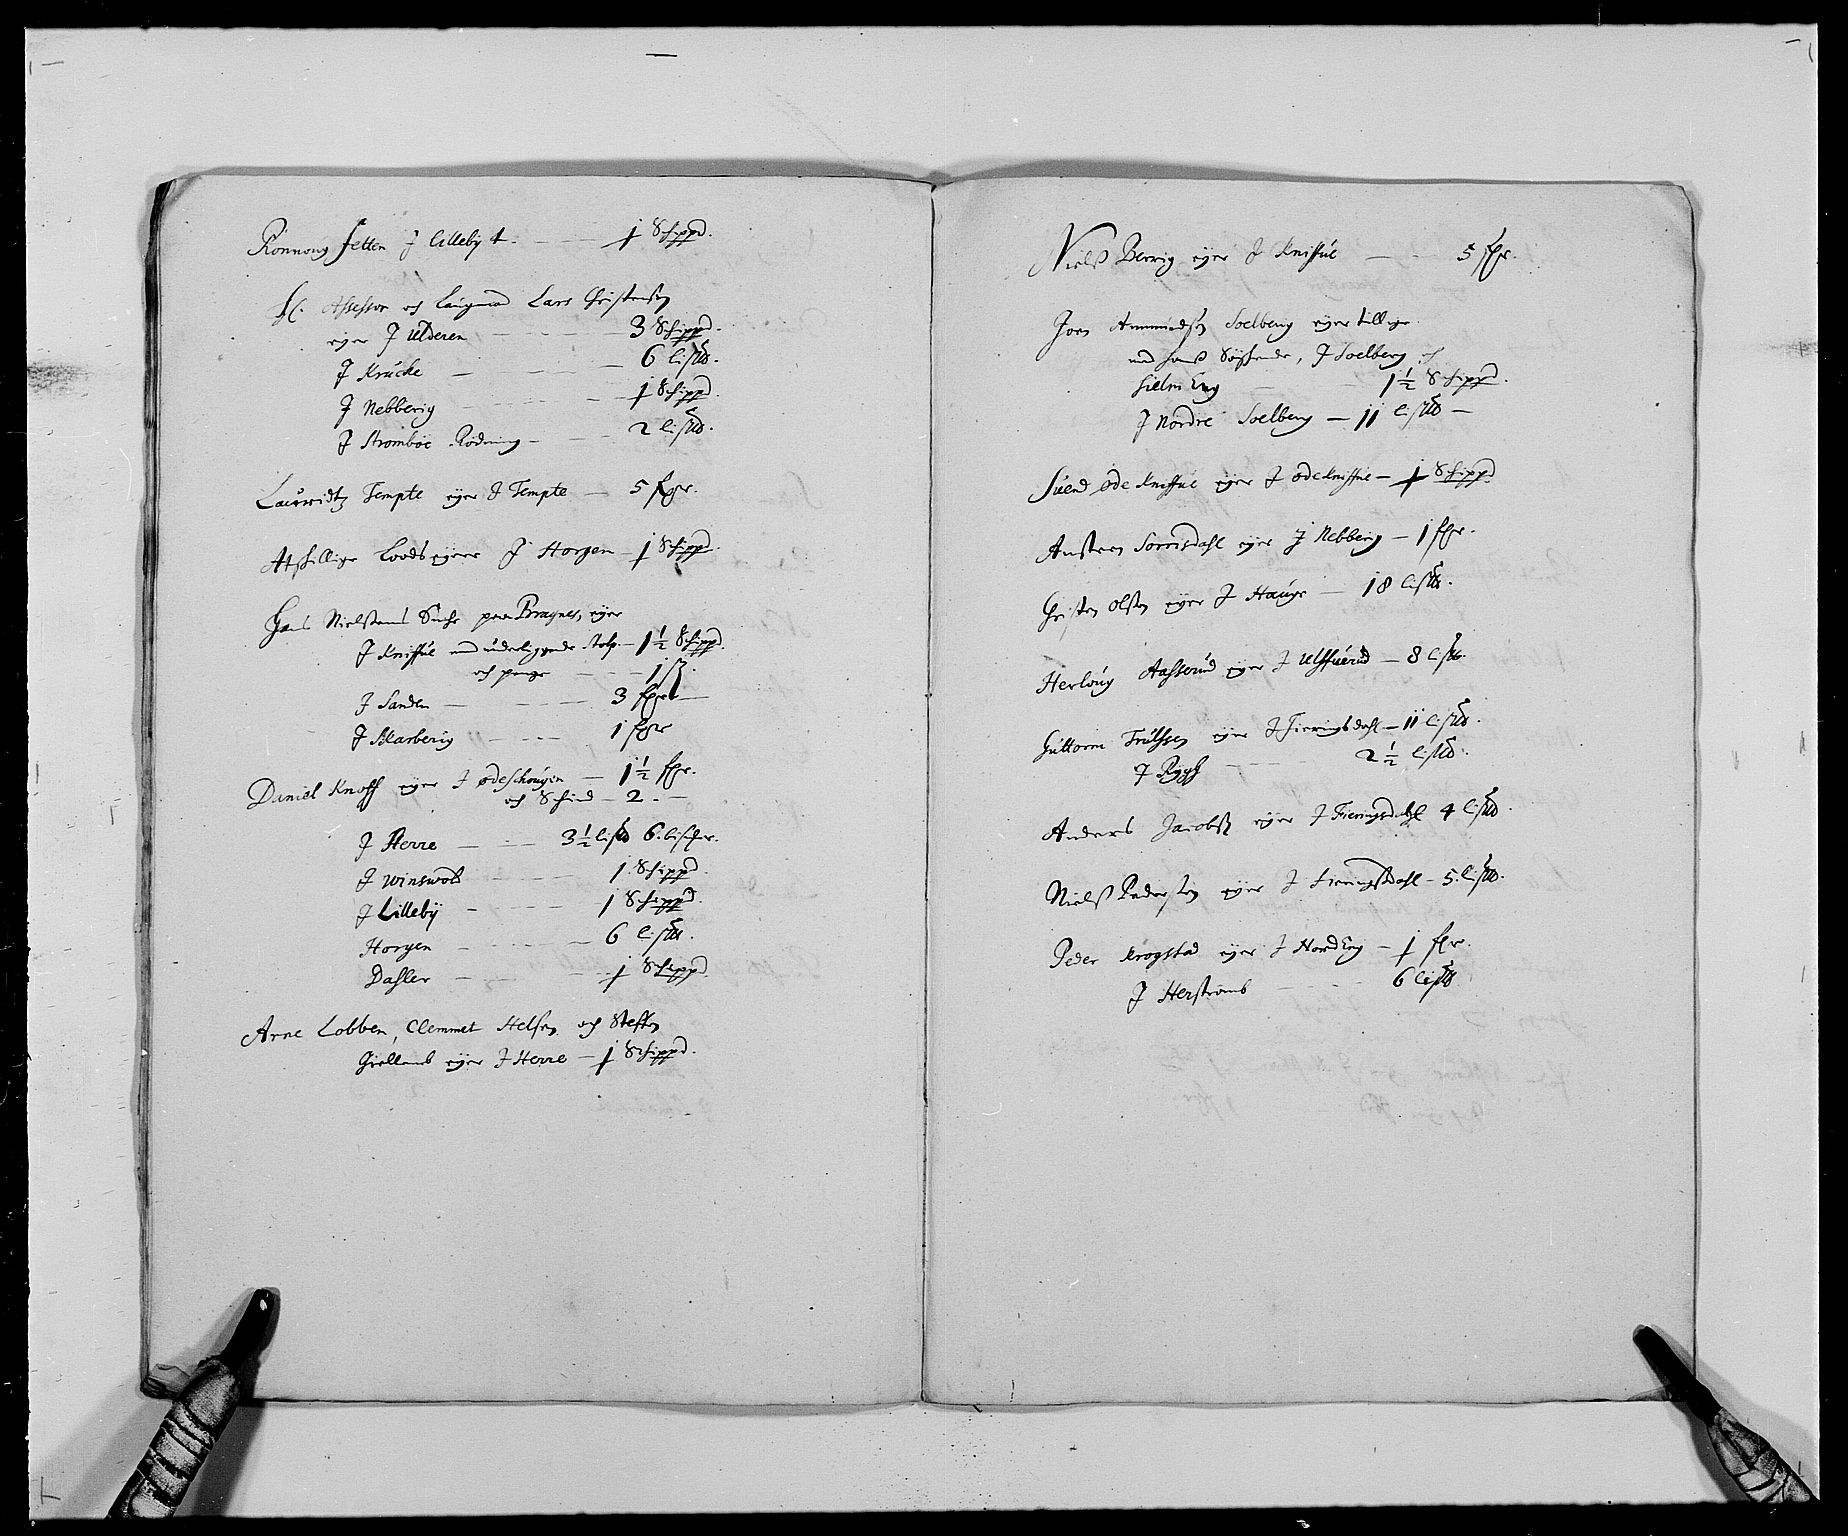 Ronnoug Jetten J Lilleby t. — 1 Schippd.
Hl. Assessor och Laugmand Lars Christensen
eyer J Ulderen — 3 Schippd.
J Krucke — 6 lispd.
J Nebberig — 1 Schippd.
J Stromboe Rødning — 2 lispd.
Lauridtz Tempte eyer J Tempte — 5 fgr.
Atschillige Lodseyere J Horgen — 1 Schippd.
Hans Nielssens Enche paa Bragnes, eyer
J Kniffue med underliggende — 1½ Schippd.
och penge — 1 ß.
J Sanden — 3 fgr
J Skarberig — 1 fgr
Daniel Knoff eyer J Ødeschougen — 1½ fgr.
och Schind — 2 —
J Herre — 3½ lispd 6
J Winswold — 1 Schippd.
J Lilleby — 1 Schippd.
Horgen — 6 lispd.
Dahler — 1 Schippd
Arne Lobben, Clemmet Helsen och Steffen
Giellend eyer J Herre — 1 Schippd.
Nielß Berrig eyer J Kniffue — 5 fgr.
Joen Ammundsen Soelberg eyer tillige
med hans Søschende, J Soelberg och
Hielm Eng — 1½ Schippd.
J Nordre Soelberg — 11 lispd —
Suend Øde Kniffue eyer J Øde Kniffue — 1 Schippd
Ansten Sorrisdahl eyer J Nebberg — 1 fgr.
Christen Olsen eyer J Hauge — 18 lispd.
Herloug Aasserud eyer J Ulffuerud — 8 lispd.
Guttorm Trulssen eyer J Fieringsdahl — 11 lispd.
J Rygh — 2½ lispd.
Anders Jacobsen eyer J Fieringsdahl 4 lispd.
Nielß Pedersen eyer J Fieringsdahl — 5 lispd.
Peder Krogstad eyer J Nord Eng — 1 fgr.
J Herstrømb — 6 lispd